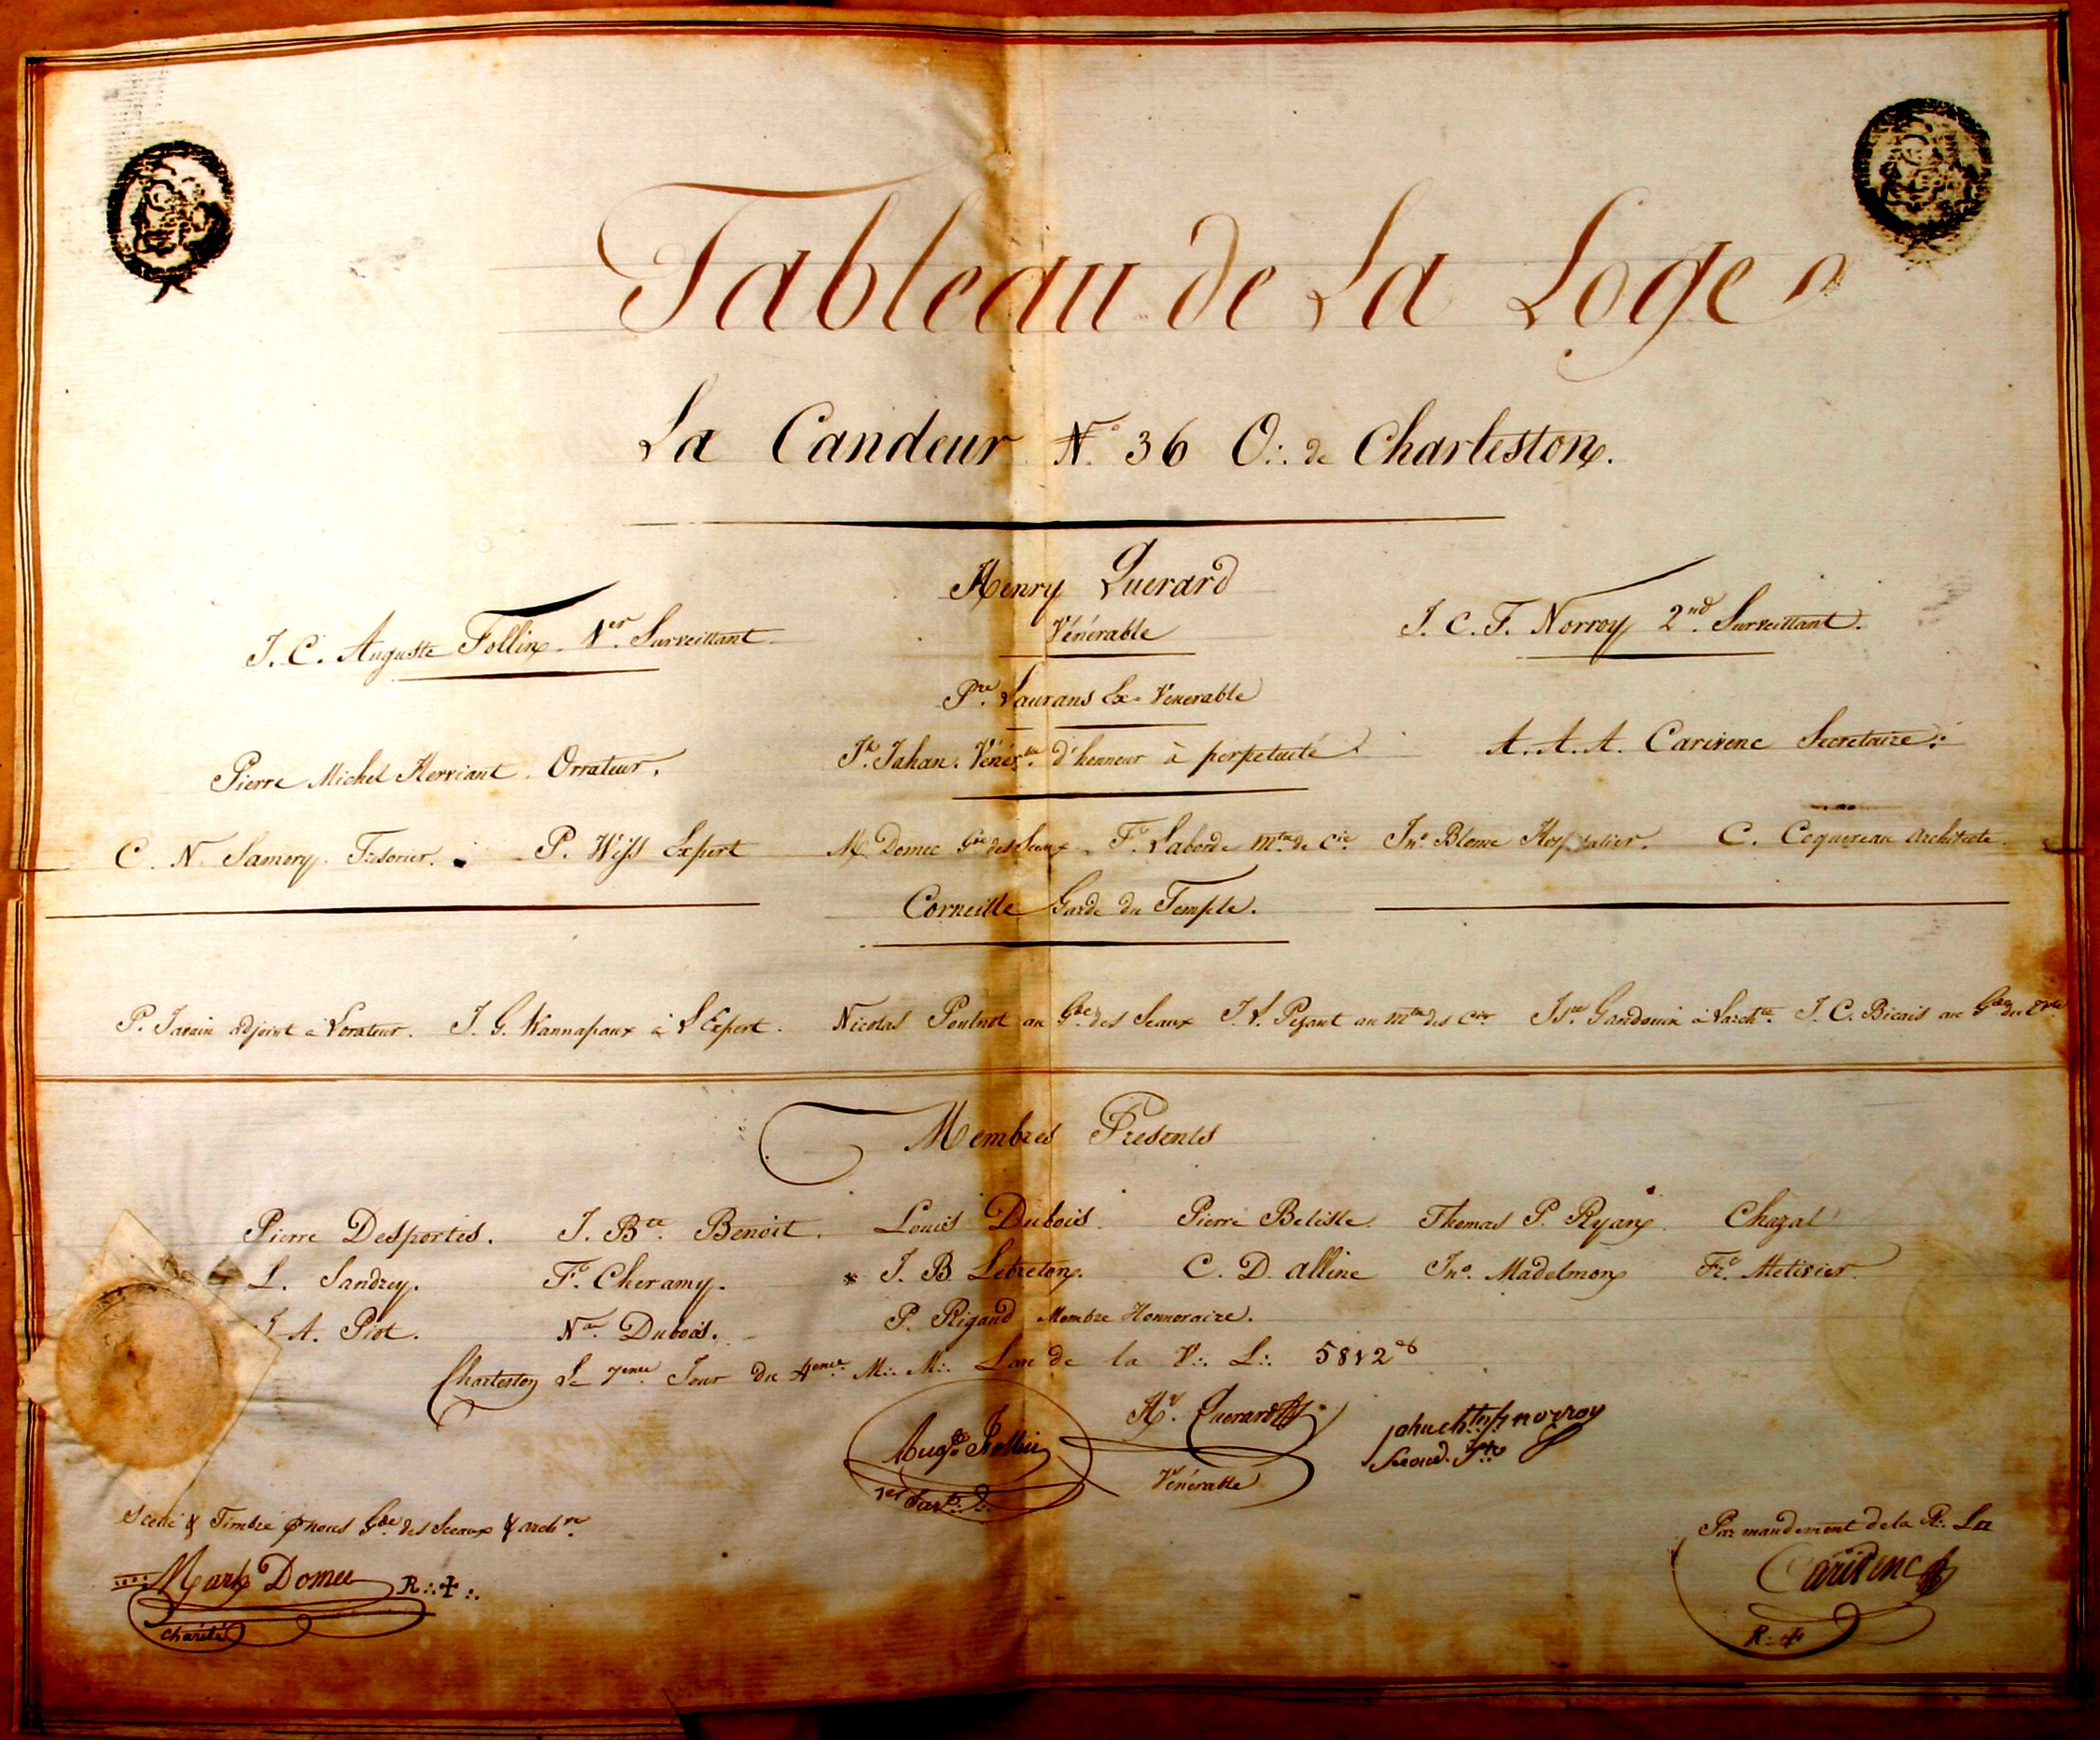 Tableau de La Loge
La Candeur N.° 36 O∴ de Charleston.
Henry Querard
J. C. Auguste Follin 1er Surveillant
Vénérable
J. C. F. Norroy 2nd Surveillant.
Pre. Laurans Ex-Venerable
Pierre Michel Herviant. Orrateur.
Jh. Jahan. Vénér. d'honneur à perpetuité
A. A. A. Carivenc Secretaire.
C. N. Samory. Trésorier. P. Weiss Expert M. Domec Gde des Sceaux F. Laborde Mtre de Cie Jno. Blome Hospitalier. C. Coquereau Architecte.
Corneille Garde du Temple.
P. Javain adjoint à Lorateur. J. G. Wannapaux à L'Expert. Nicolas Poulnot au Gde des Sceaux J. L. Pezant au mtre des Cies Gandouin à Larchte. J. C. Bicais au Gde du
Membres Presents
Pierre Desportes. J. Bte. Benoit. Louis Dubois. Pierre Belisle. Thomas P. Ryan. Chazal
L. Sandrey. F. Cheramy. * J. B. Lebreton. C. D. alline Jno. Madelmon Metivier.
J A. Piot. Nas. Dubois. P. Rigaud Membre Honnoraire.
Charleston Le 7eme Jour du 4eme M∴ M∴ Lan de la V∴ L∴ 5812
Augte Follin
Hy. Querard
norroy
1er Surv.
Vénérable
Second.
Scellé & Timbré p nous Gde des Sceaux & archve
Par mandement de la R∴ L
Mark Domec R∴ ✝∴
Carivenc
Charité
R∴ ✝